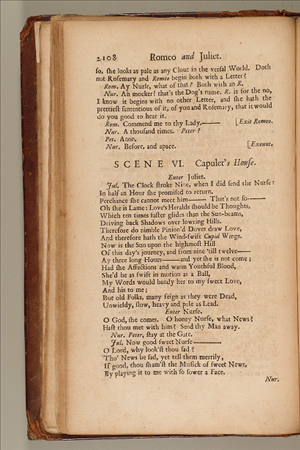 2108 Romeo and Juliet.
so, she looks as pale as any Clout in the versal World. Doth
not Rosemary and Romeo begin both with a Letter?
Rom. Ay Nurse, what of that? Both with an R.
Nur. Ah mocker! that's the Dog's name. R. is for the no,
I know it begins with no other Letter, and she hath the
prettiest sententious of it, of you and Rosemary, that it would
do you good to hear it.
Rom. Commend me to thy Lady.—— [Exit Romeo.
Nur. A thousand times. Peter?
Pet. Anon.
Nur. Before, and apace. [Exeunt.
SCENE VI. Capulet's House.
Enter Juliet.
Jul. The Clock strook Nine, when I did send the Nurse:
In half an Hour she promised to return.
Perchance she cannot meet him—— That's not so——
Oh she is Lame: Love's Heralds should be Thoughts,
Which ten times faster glides than the Sun-beams,
Driving back Shadows over lowring Hills.
Therefore do nimble Pinion'd Doves draw Love,
And therefore hath the Wind-swift Cupid Wings.
Now is the Sun upon the highmost Hill
Of this day's journey, and from nine 'till twelve——
Ay three long Hours——and yet she is not come;
Had she Affections and warm Youthful Blood,
She'd be as swift in motion as a Ball,
My Words would bandy her to my sweet Love,
And his to me;
But old Folks, many feign as they were Dead,
Unwieldy, slow, heavy and pale as Lead.
Enter Nurse.
O God, she comes. O honey Nurse, what News?
Hast thou met with him? Send thy Man away.
Nur. Peter, stay at the Gate.
Jul. Now good sweet Nurse——
O Lord, why look'st thou sad?
Tho' News be sad, yet tell them merrily,
If good, thou sham'st the Musick of sweet News,
By playing it to me with so sower a Face.
Nur.